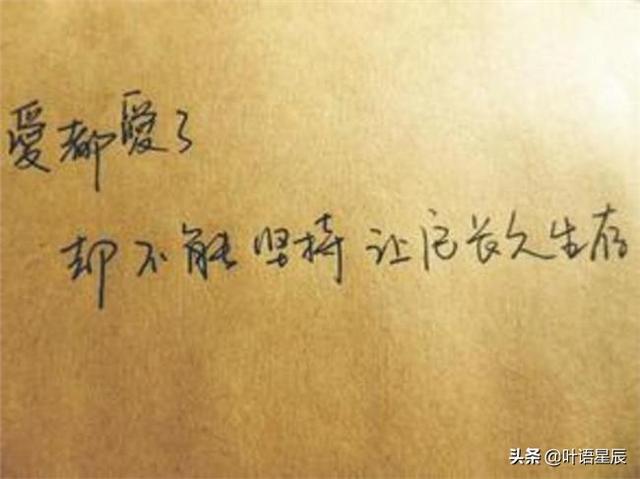 愛都愛了
却不能坚持让它长久生存
头条 @叶语星辰